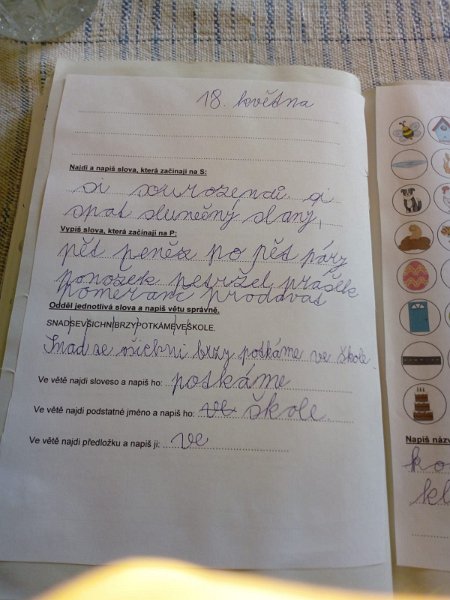 18. května
Najdi a napiš slova, která začínají na S:
si sourozenci si
spát slunečný slaný,
Vypiš slova, která začínají na P:
pět peněz po pět páry
ponožek petržel prášek
pomeranč prodavač
Odděl jednotlivá slova a napiš větu správně.
SNADSEVŠICHNIBRZYPOTKÁMEVEŠKOLE.
Snad se všichni brzy potkáme ve škole.
Ve větě najdi sloveso a napiš ho: potkáme
Ve větě najdi podstatné jméno a napiš ho: ve škole
Ve větě najdi předložku a napiš ji: ve
Napiš názv
ko
kl